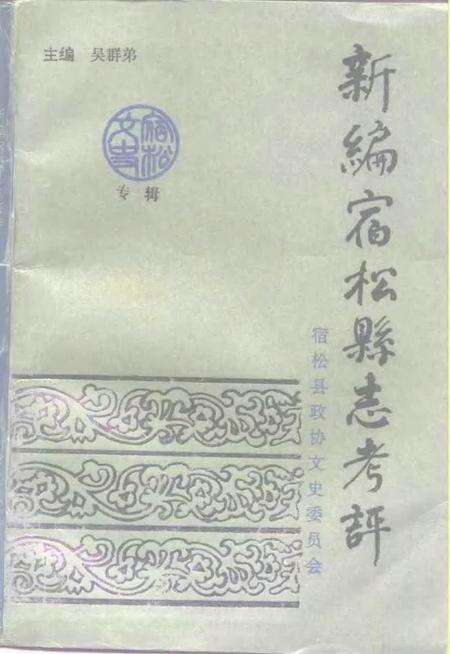 主编 吴群弟
宿松
文史
专辑
新編宿松縣志考評
宿松县政协文史委员会